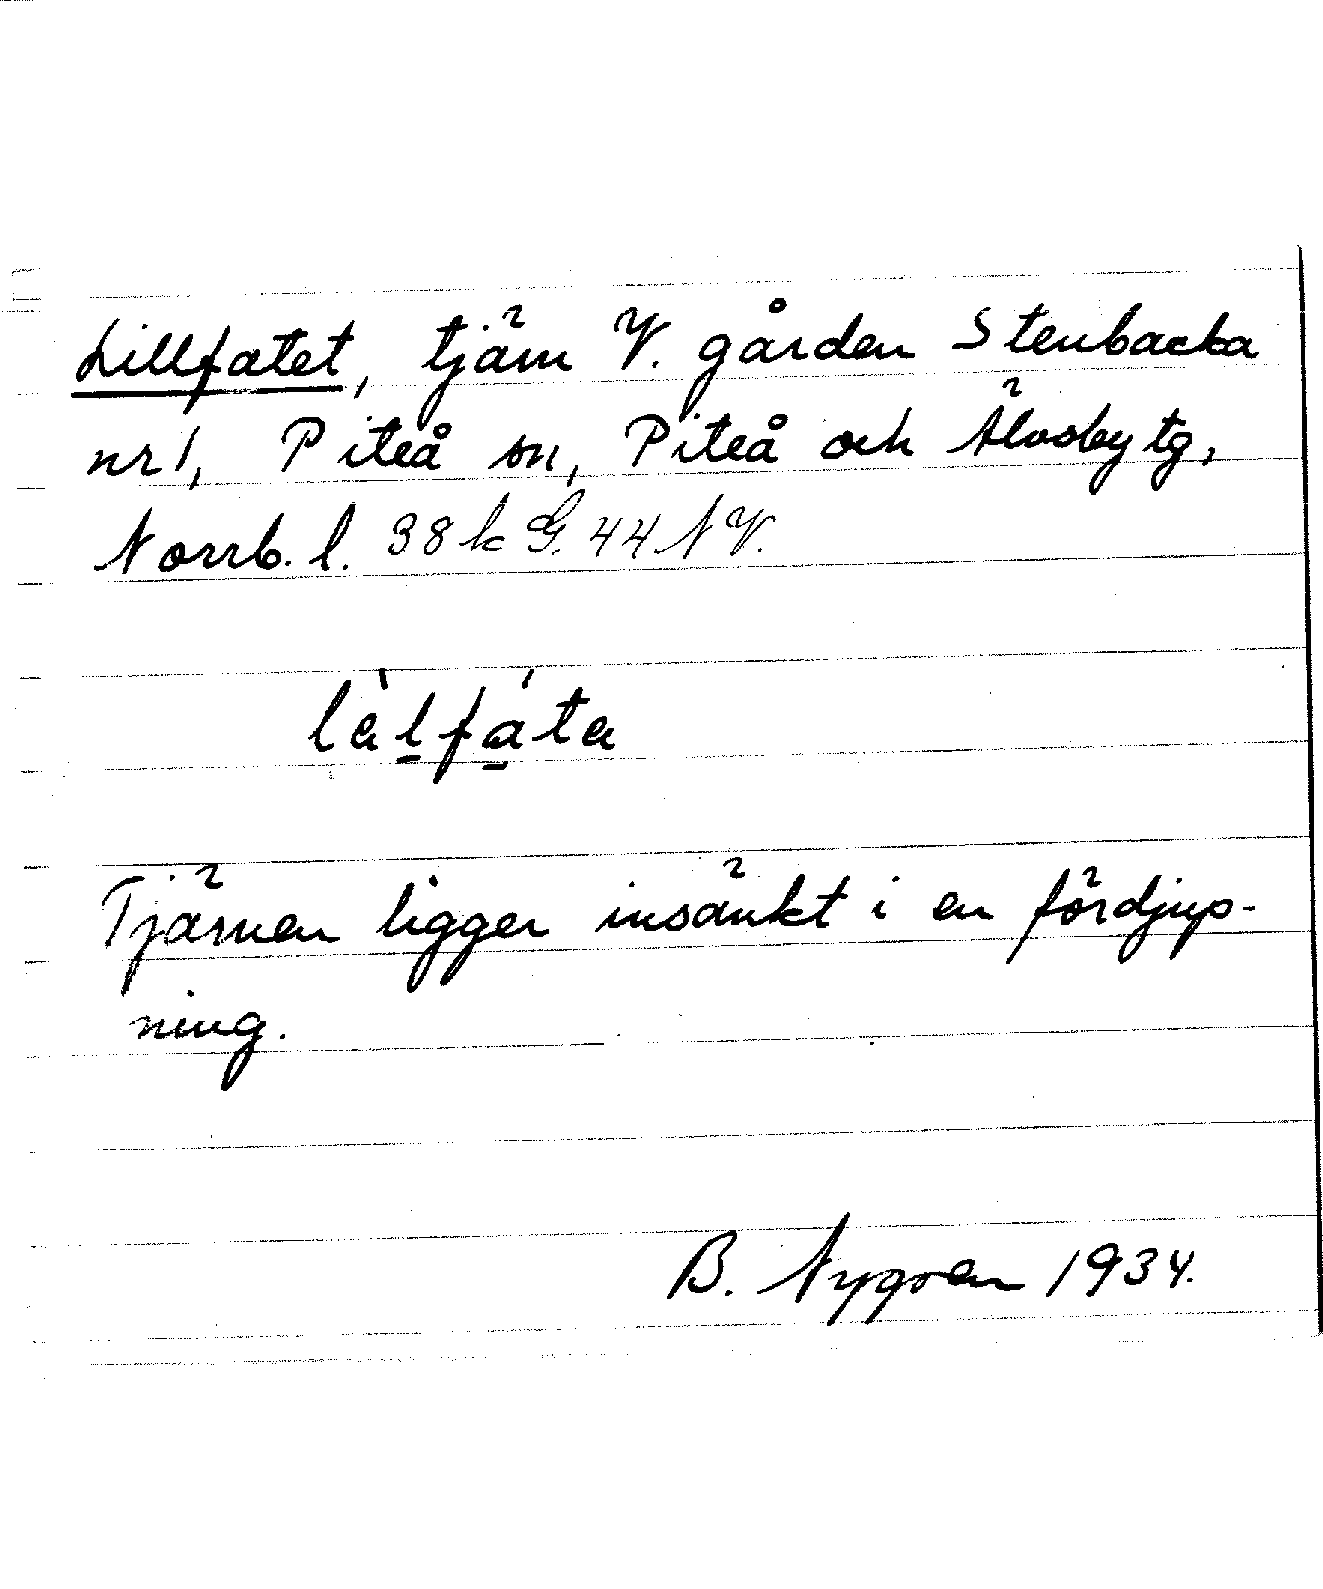 Lillfatet, tjärn V. gården Stenbacka
nr 1, Piteå sn, Piteå och Älvsby tg,
Norrb. l. 38 k G. 44 NV.
làlfáta
Tjärnen ligger insänkt i en fördjup-
ning.
B. Nygren 1934.